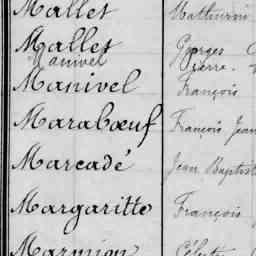 Mallet Mathurin
Mallet Georges
Manivel Pierre
Manivel François
Marabœuf François Jean
Marcadé Jean Baptist
Margaritte François
Marmion Céleste